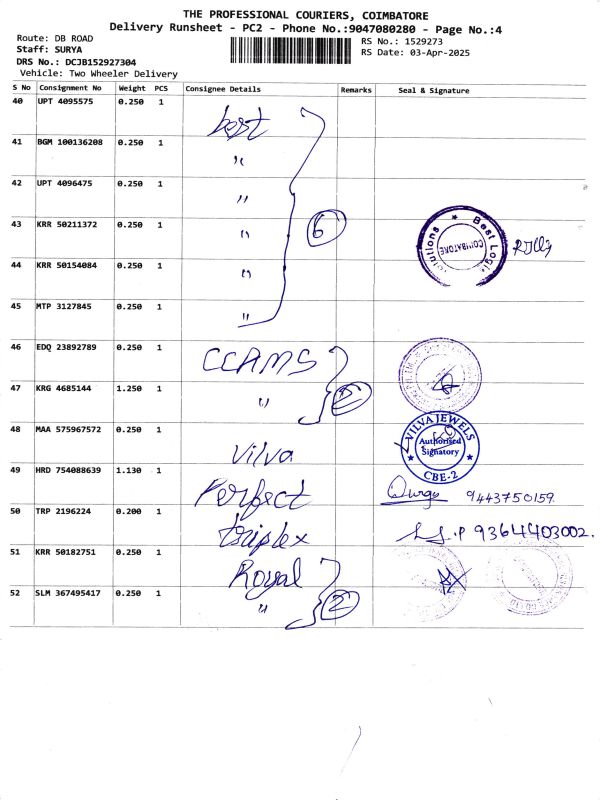 THE PROFESSIONAL COURIERS, COIMBATORE
Delivery Runsheet - PC2 - Phone No.:9047080280 - Page No.:4
Route: DB ROAD
RS No.: 1529273
Staff: SURYA
RS Date: 03-Apr-2025
DRS No.: DCJB152927304
Vehicle: Two Wheeler Delivery
S No Consignment No Weight PCS Consignee Details Remarks Seal & Signature
40 UPT 4095575 0.250 1 best
41 BGM 100136208 0.250 1 "
42 UPT 4096475 0.250 1 "
43 KRR 50211372 0.250 1 " 6
Best Logic
COIMBATORE
44 KRR 50154084 0.250 1 "
45 MTP 3127845 0.250 1 "
46 EDQ 23892789 0.250 1 CCAMS
47 KRG 4685144 1.250 1 " 2
48 MAA 575967572 0.250 1 Vilva
VILVA JEWELS
Authorised
Signatory
CBE-2
49 HRD 754088639 1.130 1 Perfect 9443750159
50 TRP 2196224 0.200 1 triplex 9364403002.
51 KRR 50182751 0.250 1 Royal
52 SLM 367495417 0.250 1 " 2